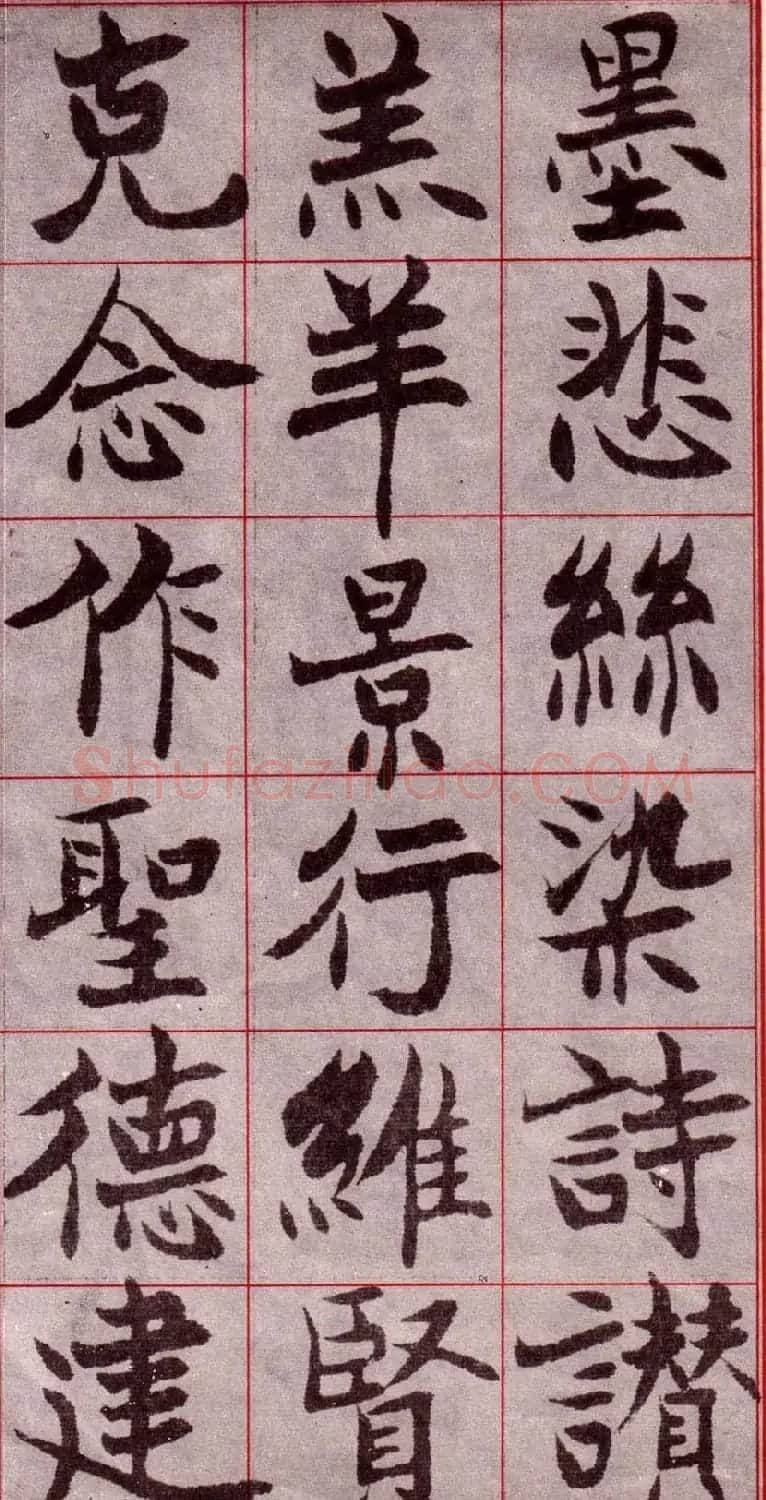 墨悲絲染詩讃
羔羊景行維賢
克念作聖德建
Shufaziliao.COM